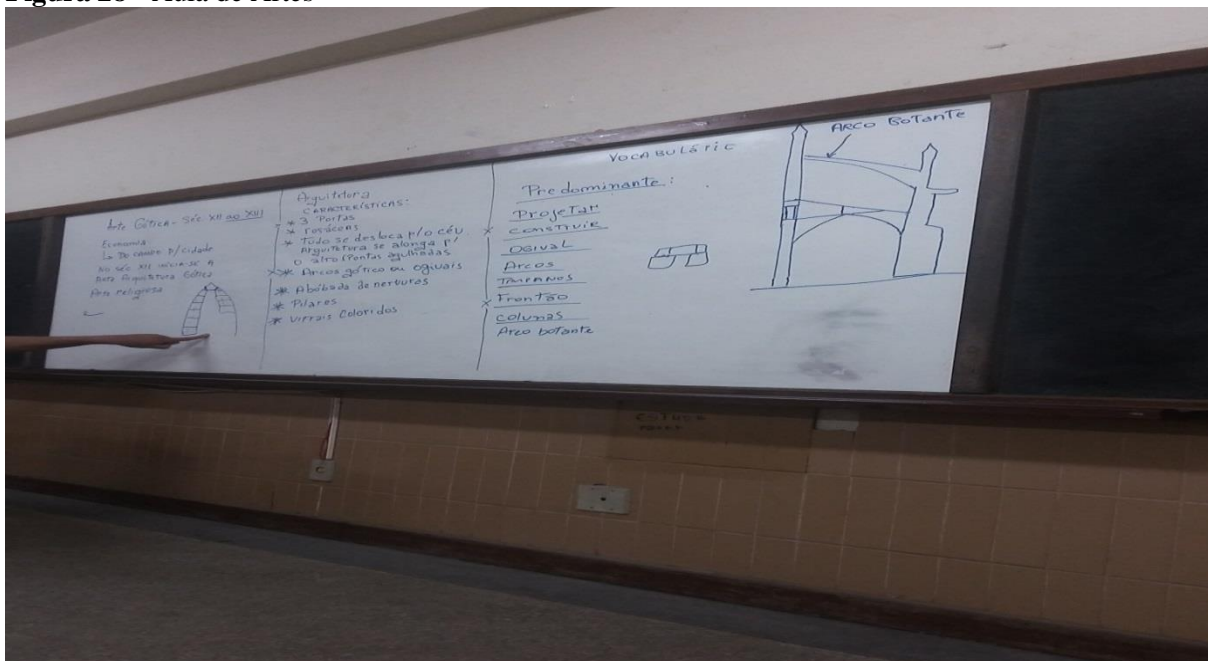 Arte Gótica - Séc XII ao XIII
Economia
Do campo p/cidade
No séc XII inicia-se a
Arquitetura Gótica
Arte religiosa
Arquitetura
CARACTERÍSTICAS:
* 3 Portas
* rosáceas
* Tudo se desloca p/o céu.
Arquitetura se alonga p/
o alto (Pontas agulhadas
* Arcos gótico ou ogivais
* Abóbada de nervuras
* Pilares
* Vitrais Coloridos
VOCABULáriC
Predominante:
Projetar
x construir
OGIVAL
Arcos
TÍMPANOS
x Frontão
colunas
Arco botante
ARCO BOTANTE